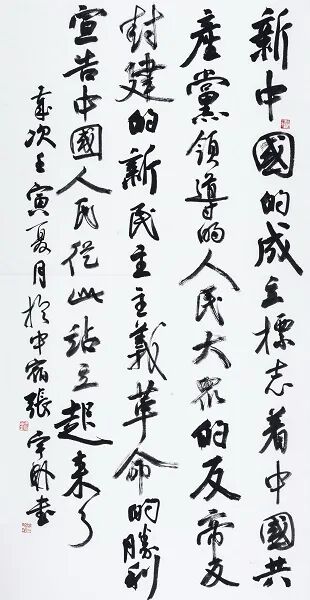 新中國的成立標志着中國共
產黨領導的人民大眾的反帝反
封建的新民主主義革命的勝利
宣告中國人民從此站立起來了
歲次壬寅夏月於中宿張宇書